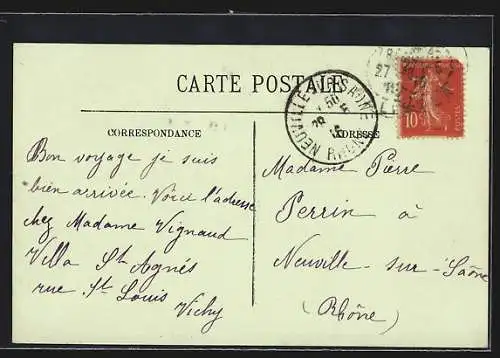 CARTE POSTALE
CORRESPONDANCE
ADRESSE
NEUVILLE-SUR-SAÔNE
RHÔNE
10
Bon voyage je suis
bien arrivée. Voici l'adresse
chez Madame Vignaud
Villa St Agnés
rue St Louis
Vichy
Madame Pierre
Perrin à
Neuville-sur-Saône
(Rhône)